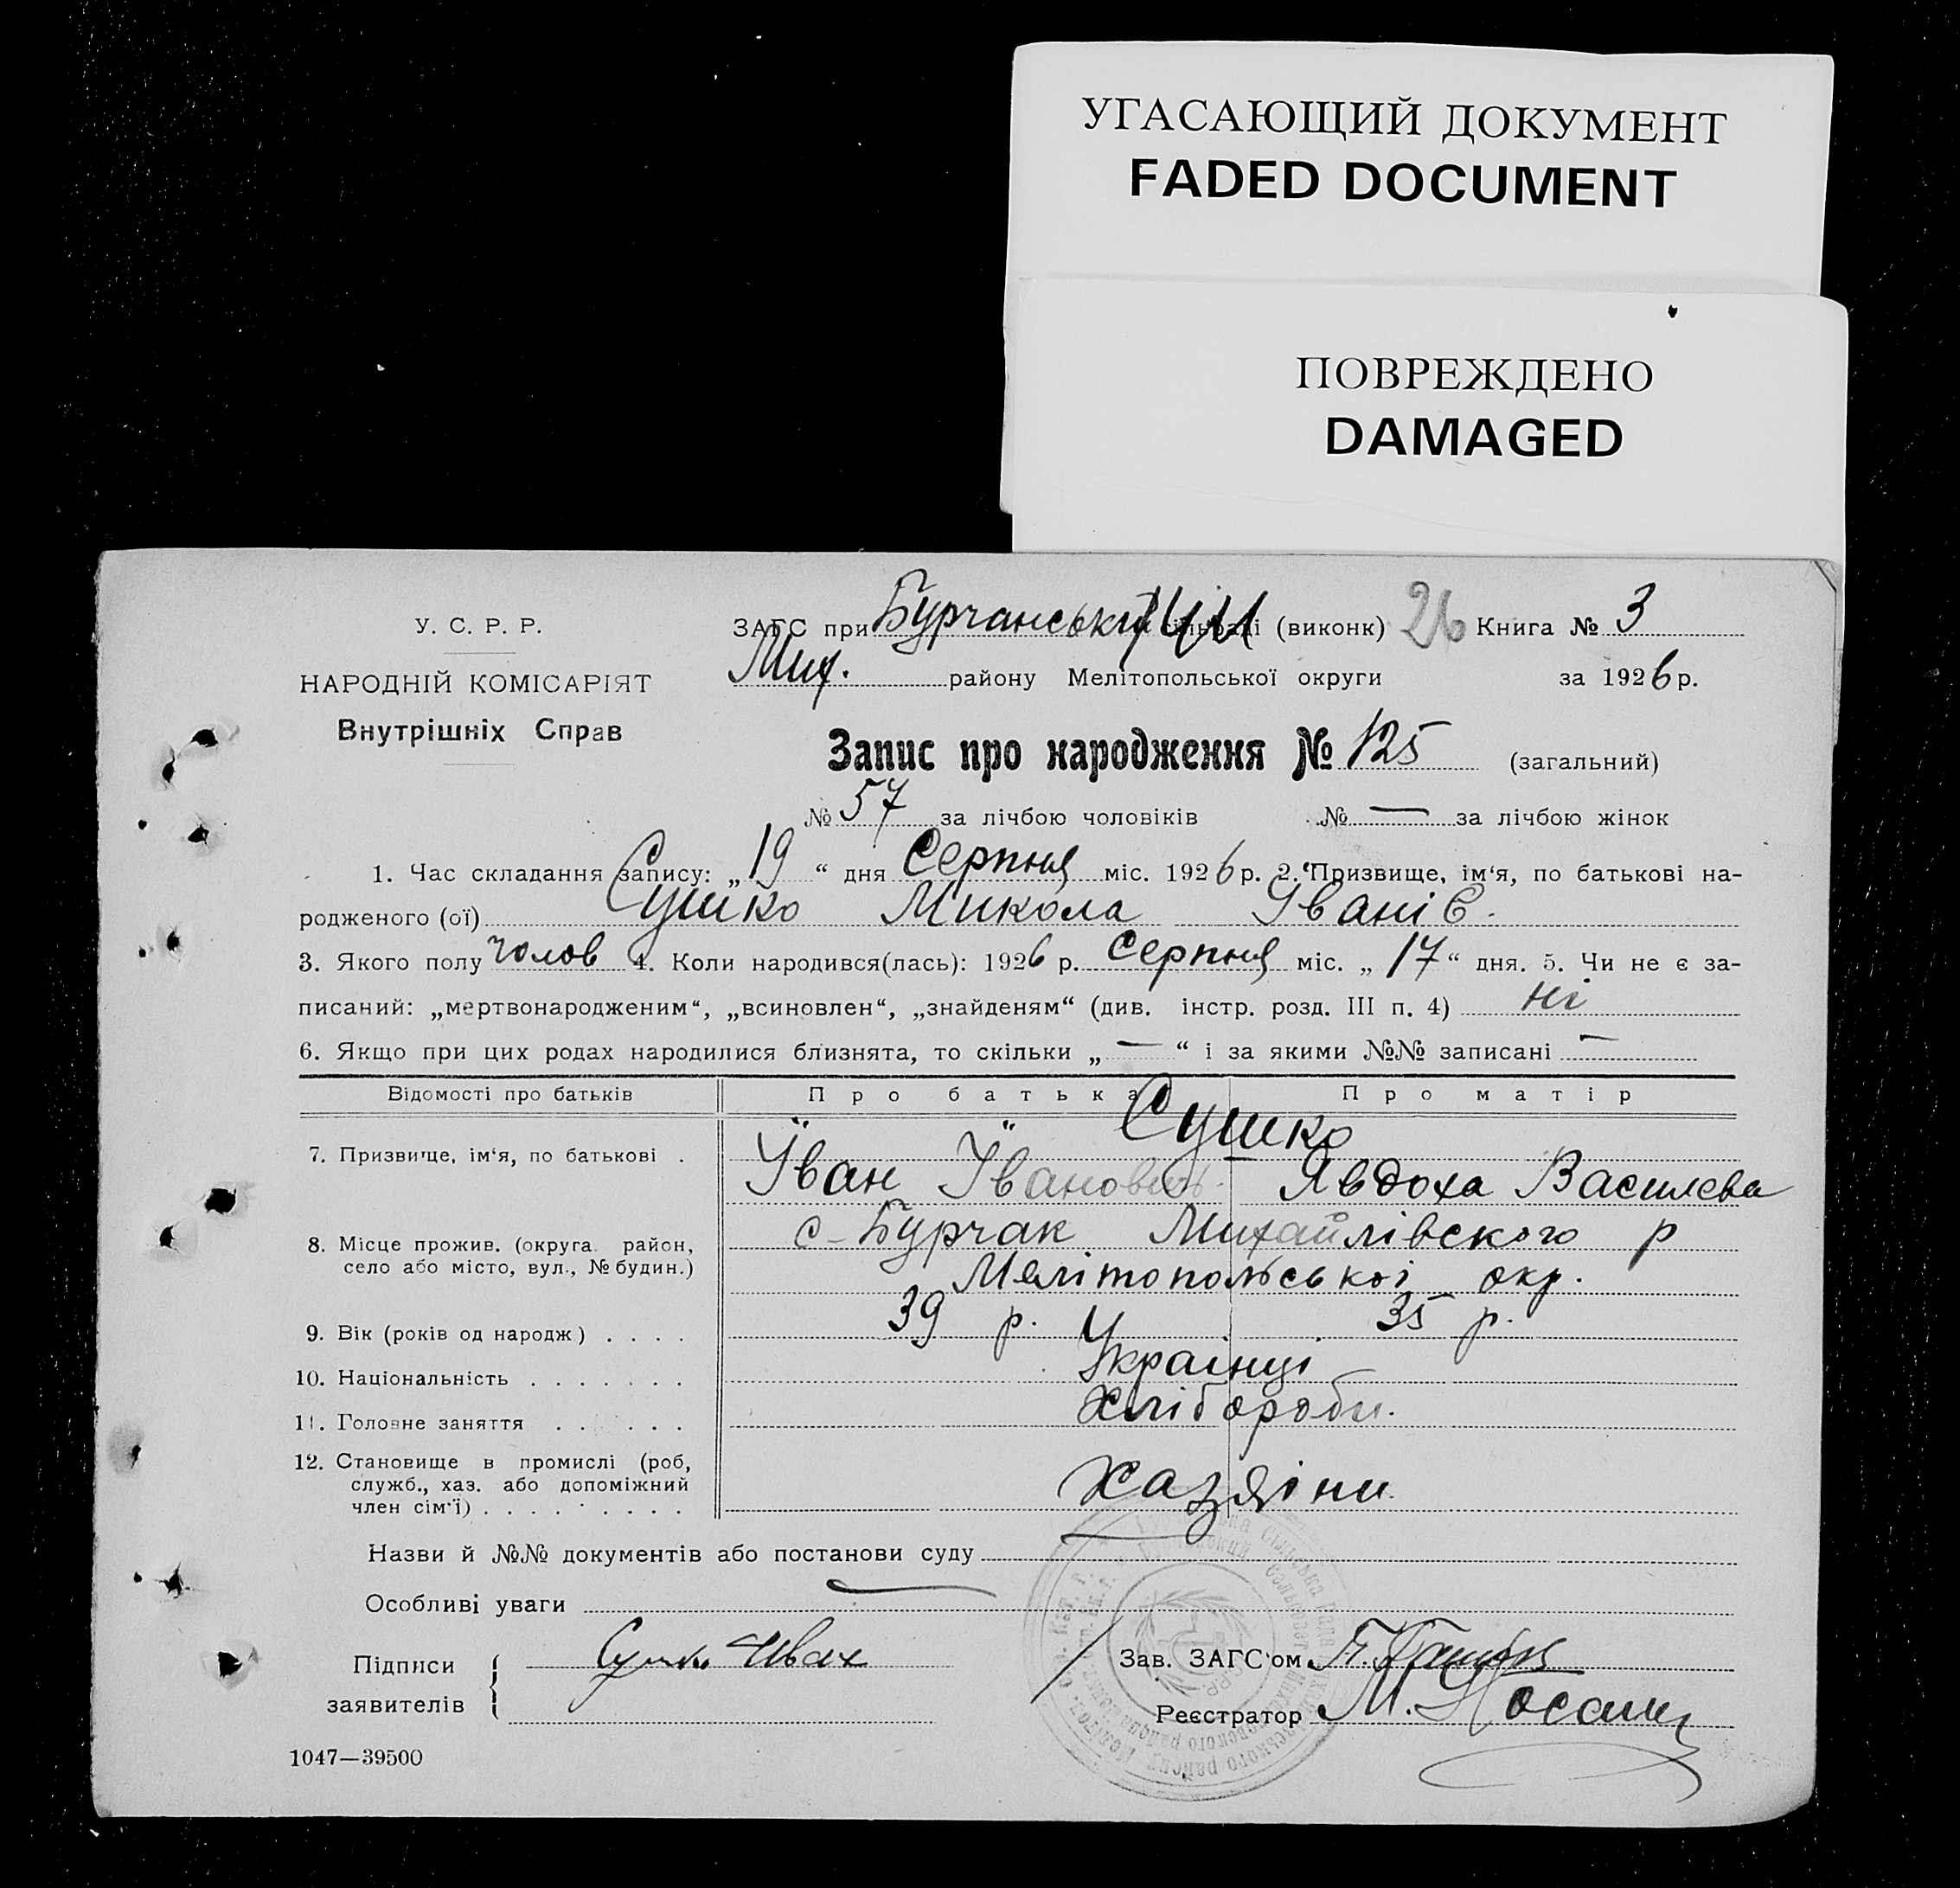 УГАСАЮЩИЙ ДОКУМЕНТ
FADED DOCUMENT
ПОВРЕЖДЕНО
DAMAGED
У. С. Р. Р.
НАРОДНІЙ КОМІСАРІЯТ
Внутрішніх Справ
ЗАГС при Бурчанський (виконк) 26 Книга № 3
Мих. району Мелітопольської округи за 1926 р.
Запис про народження № 125 (загальний)
№ 57 за лічбою чоловіків № — за лічбою жінок
1. Час складання запису: „19“ дня Серпня міс. 1926 р. 2. Призвище, ім‘я, по батькові на-
родженого (ої) Сушко Микола Івані Є.
3. Якого полу чолов 4. Коли народився(лась): 1926 р. Серпня міс. „17“ дня. 5. Чи не є за-
писаний: „мертвонародженим“, „всиновлен“, „знайденям“ (див. інстр. розд. III п. 4) ні
6. Якщо при цих родах народилися близнята, то скільки „—“ і за якими №№ записані —
Відомості про батьків Про батька Про матір
Сушко
7. Призвище, ім‘я, по батькові . Їван Їванович Явдоха Василєва
с-Бурчак Михайлівского р
8. Місце прожив. (округа район,
село або місто, вул., № будин.) Мелітопольської окр.
9. Вік (років од народж) . . . . 39 р. 35 р.
10. Національність . . . . . . . Українці
11. Головне заняття . . . . . . Хлібороби.
12. Становище в промислі (роб,
служб., хаз. або допоміжний
член сім‘ї) . . . . . . . . . Хазяїни
Назви й №№ документів або постанови суду
Особливі уваги —
Підписи Сушко Иван Зав. ЗАГС‘ом
заявителів Реєстратор М.
1047—39500